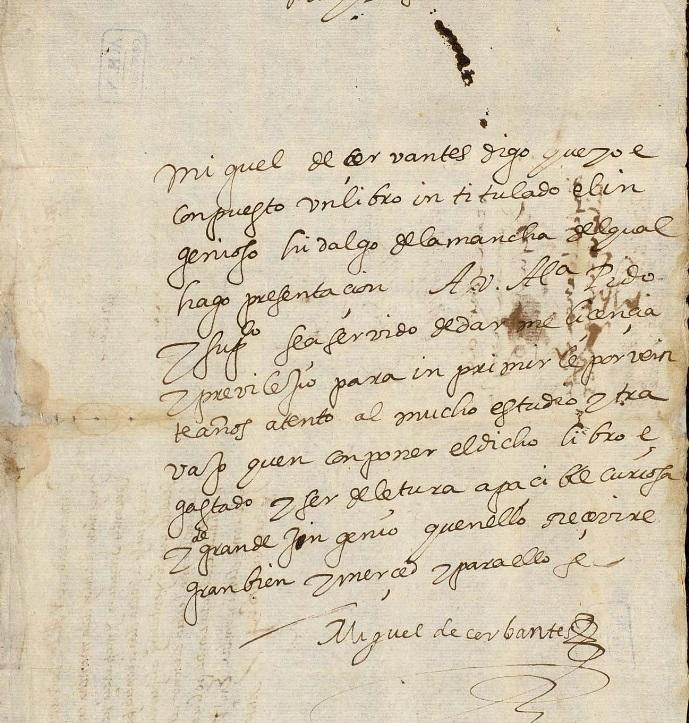 Miguel de cervantes digo que yo e
conpuesto un libro intitulado el in
genioso hidalgo de la mancha del qual
hago presentacion A. v. Al.a Pido
y sup.co sea servido de dar me licencia
y previlejio para inprimirle por vein
te años atento al mucho estudio y tra
vajo quen conponer el dicho libro e
gastado y ser de letura apacible curiosa
y de grande ingenio quenello rrecevire
gran bien y merced y para ello &
Miguel de cerbantes